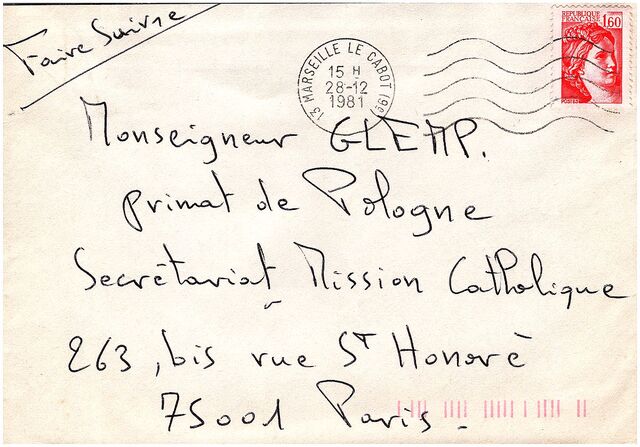 Faire Suivre
RÉPUBLIQUE
FRANÇAISE
1,60
13 MARSEILLE LE CABOT (9e)
15 H
28-12
1981
Monseigneur GLEMP.
primat de Pologne
Secrétariat Mission Catholique
263, bis rue St Honoré
75001 Paris.